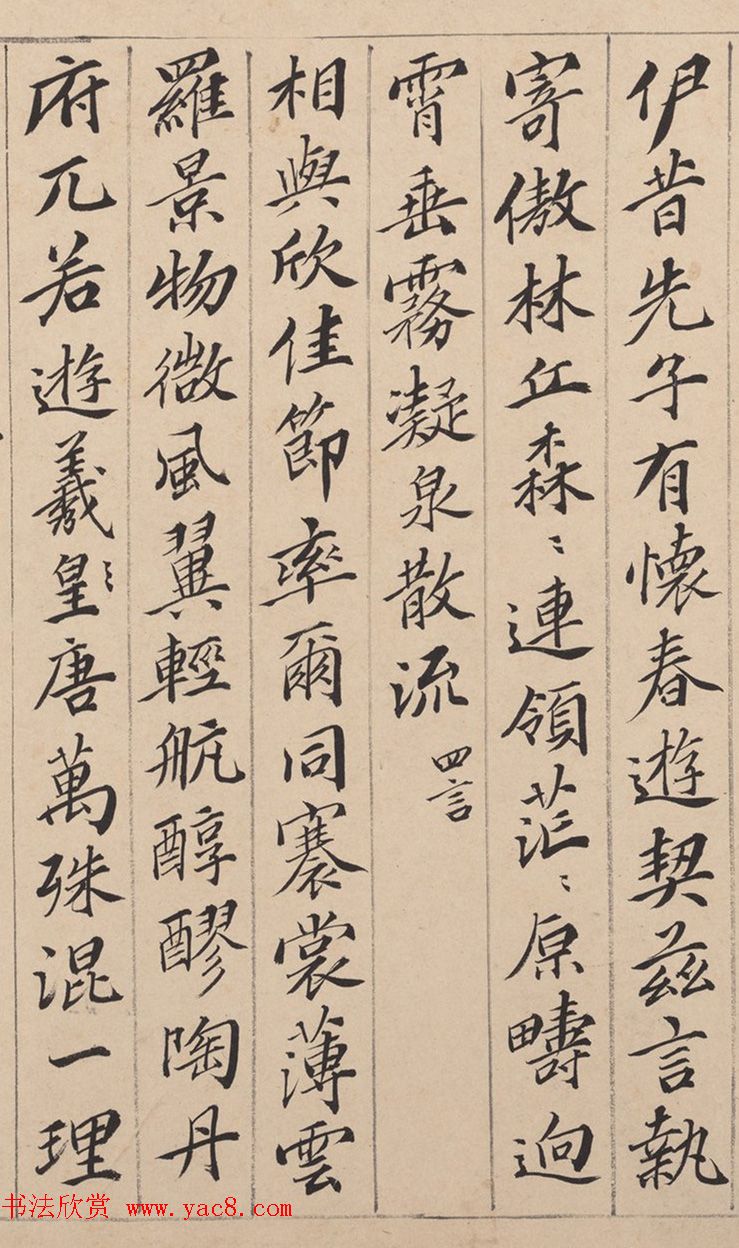 伊昔先子有懷春遊契茲言執
寄傲林丘森〻連領茫〻原疇逈
霄垂霧凝泉散流 四言
相與欣佳節率爾同褰裳薄雲
羅景物微風翼輕航醇醪陶丹
府兀若遊羲皇〻唐萬殊混一理
书法欣赏 www.yac8.com